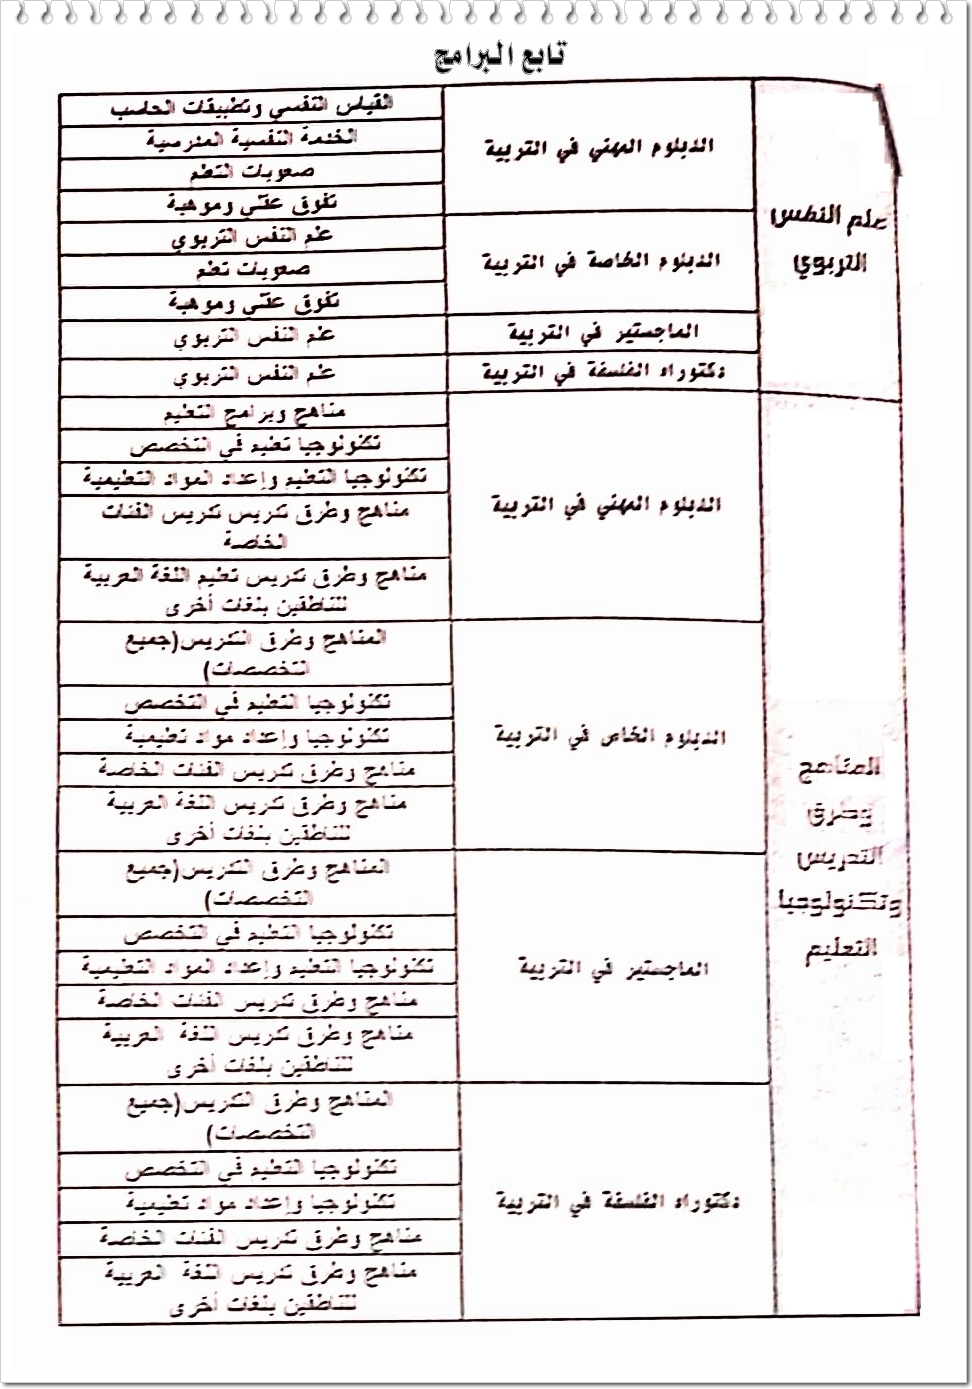 تابع البرامج
علم النفس
التربوي
الدبلوم المهني في التربية
القياس النفسي وتطبيقات الحاسب
الخدمة النفسية المدرسية
صعوبات التعلم
تفوق عقلي وموهبة
الدبلوم الخاصة في التربية
علم النفس التربوي
صعوبات تعلم
تفوق عقلي وموهبة
الماجستير في التربية
علم النفس التربوي
دكتوراه الفلسفة في التربية
علم النفس التربوي
المناهج
وطرق
التدريس
وتكنولوجيا
التعليم
الدبلوم المهني في التربية
مناهج وبرامج التعليم
تكنولوجيا تعليم في التخصص
تكنولوجيا التعليم وإعداد المواد التعليمية
مناهج وطرق تدريس تدريس الفئات
الخاصة
مناهج وطرق تدريس تعليم اللغة العربية
للناطقين بلغات أخرى
الدبلوم الخاص في التربية
المناهج وطرق التدريس(جميع
التخصصات)
تكنولوجيا التعليم في التخصص
تكنولوجيا وإعداد مواد تعليمية
مناهج وطرق تدريس الفئات الخاصة
مناهج وطرق تدريس اللغة العربية
للناطقين بلغات أخرى
الماجستير في التربية
المناهج وطرق التدريس(جميع
التخصصات)
تكنولوجيا التعليم في التخصص
تكنولوجيا التعليم وإعداد المواد التعليمية
مناهج وطرق تدريس الفئات الخاصة
مناهج وطرق تدريس اللغة العربية
للناطقين بلغات أخرى
دكتوراه الفلسفة في التربية
المناهج وطرق التدريس(جميع
التخصصات)
تكنولوجيا التعليم في التخصص
تكنولوجيا وإعداد مواد تعليمية
مناهج وطرق تدريس الفئات الخاصة
مناهج وطرق تدريس اللغة العربية
للناطقين بلغات أخرى